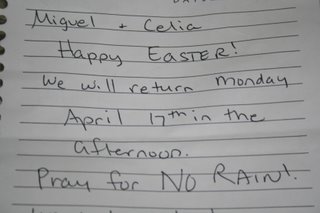 Miguel + Celia
Happy EASTER!
We will return monday
April 17th in the
afternoon.
Pray for NO RAIN!